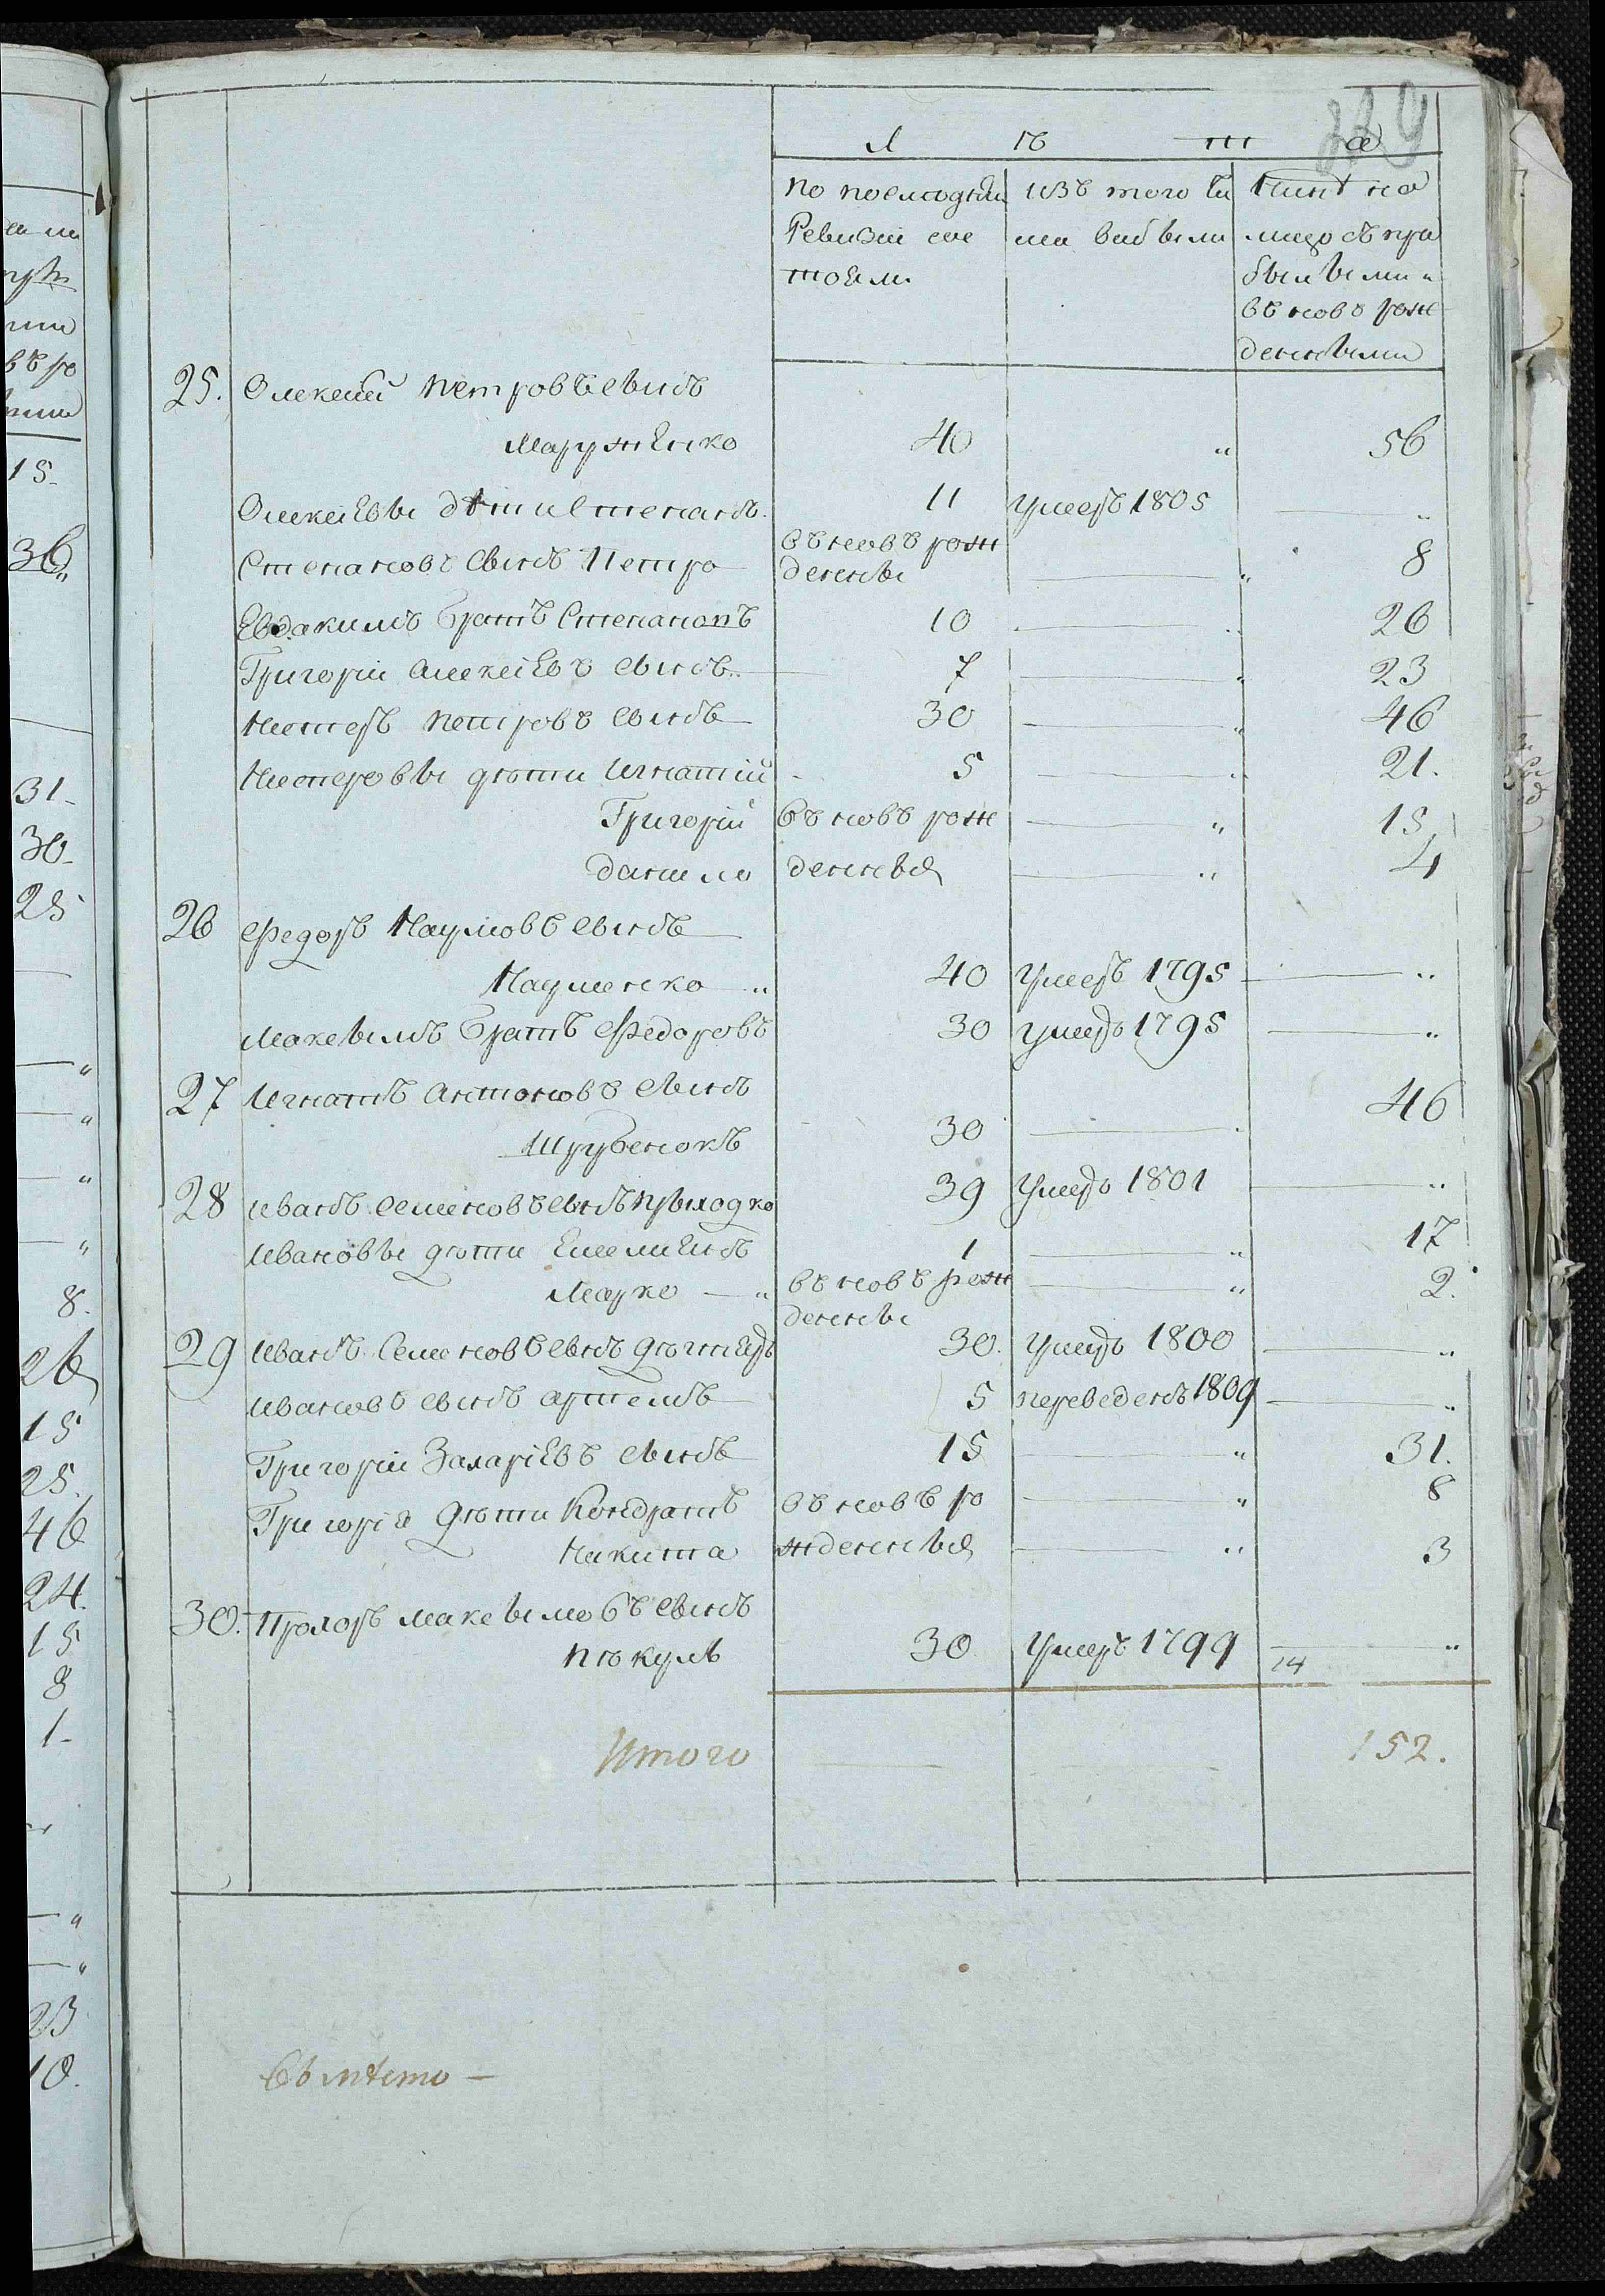 229
Л ѣ т а
по последней изъ того чи нинѣ на
Ревизіи сос ла выбыли лицо съ при
тояли былыми и
въ новь рож
денными
25. Олексей Петровъ сынъ
Маруженко 40 „ 56
Олексіевы дѣти Степанъ 11 умеръ 1805 „
Степановъ сынъ Петро въ новъ рож денны „ 8
Евдакимъ братъ Степановъ 10 „ 26
Григорій Алексіевъ сынъ 7 „ 23
Нестеръ Петровъ сынъ 30 „ 46
Нестеровы дѣти Игнатій 5 „ 21.
Григорій въ новъ рож „ 15
Данило денныя „ 4
26 Федоръ Наумовъ сынъ
Науменко „ 40 умеръ 1795 „
Максымъ братъ Федоровъ 30 умеръ 1795 „
27 Игнатъ Антоновъ сынъ 46
Шрубенокъ 30
28 Иванъ Семеновъ сынъ Прыходко 39 умеръ 1801 „
Ивановы дѣти Емелиянъ 1 „ 17
Марко — „ въ новъ рож „ 2.
денны
29 Иванъ Семеновъ сынъ 30. умеръ 1800 „
Ивановъ сынъ Артемъ 5 переведенъ 1809 „
Григорій Захаріевъ сынъ 15 „ 31.
Григорія дѣти Кондратъ въ новъ ро „ 8
Никита жденныя „ 3
30. Прохоръ Максымовъ сынъ
Пѣкуль 30 умеръ 1799 14 „
Итого 152.
Вымѣсто —
15.
36
31.
30.
25
8.
26
15
25.
46
24.
15
8
1.
23
10.